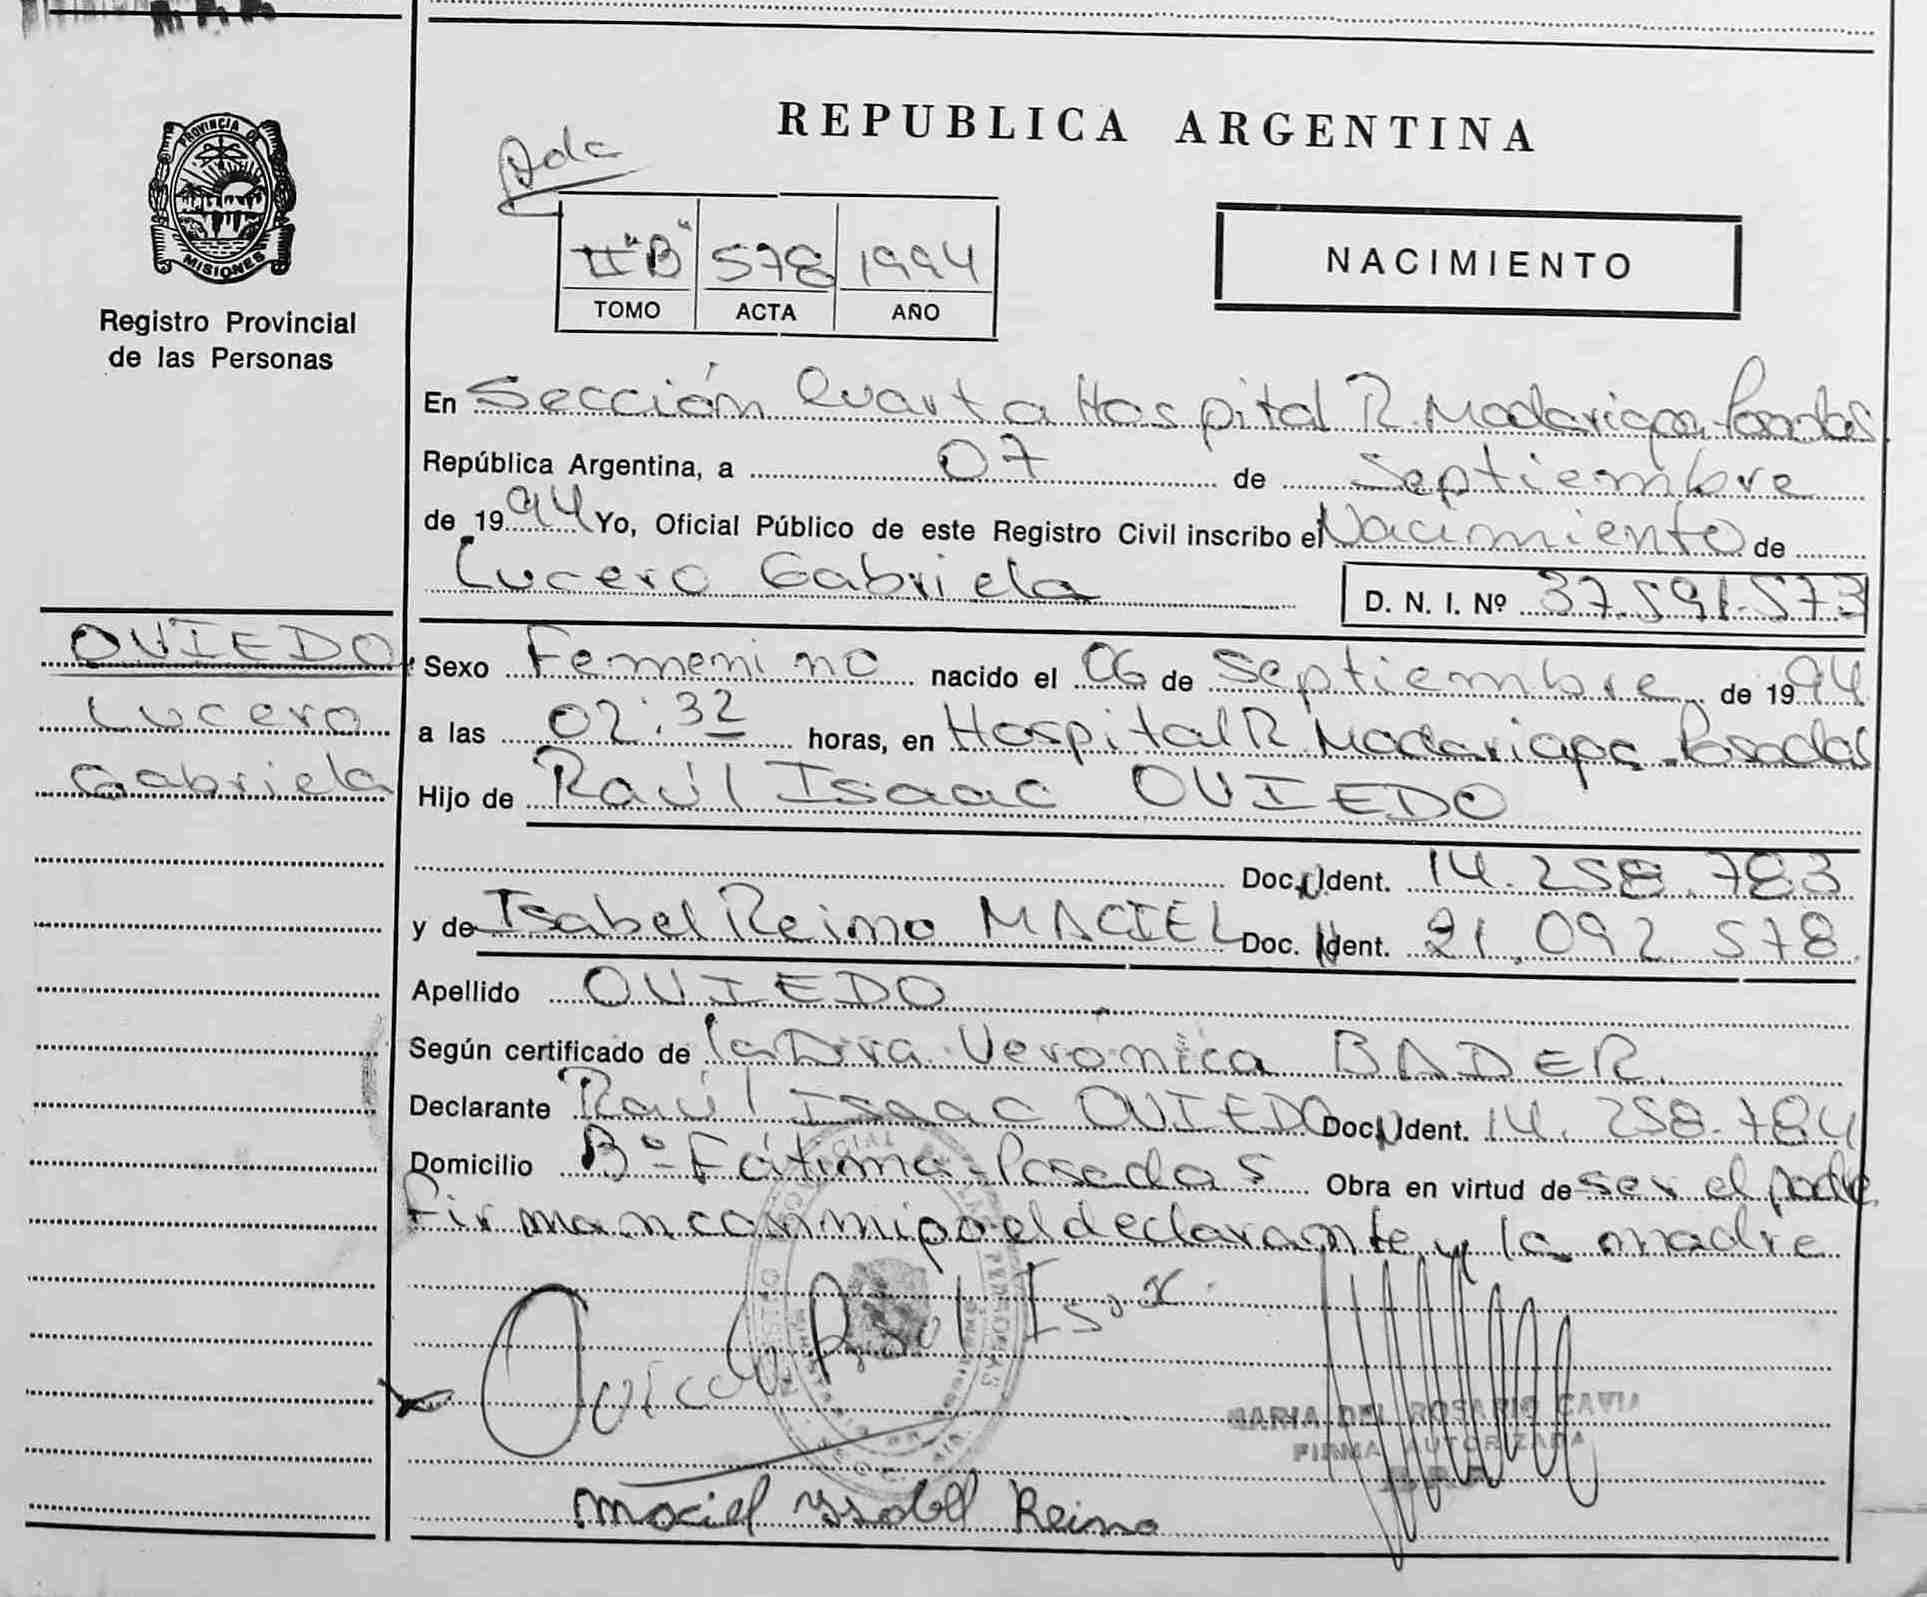 REPUBLICA ARGENTINA
PROVINCIA DE
MISIONES
Registro Provincial
de las Personas
II "B" 578 1994
TOMO ACTA AÑO
NACIMIENTO
En Sección Cuarta Hospital R. Madariaga Posadas
República Argentina, a 07 de Septiembre
de 1994 Yo, Oficial Público de este Registro Civil inscribo el Nacimiento de
Lucero Gabriela D. N. I. Nº 37.591.573
OVIEDO
Lucero
Gabriela
Sexo Femenino nacido el 06 de Septiembre de 1994
a las 02:32 horas, en Hospital R. Madariaga - Posadas
Hijo de Raúl Isaac OVIEDO
Doc. Ident. 14.258.783
y de Isabel Reimo MACIEL Doc. Ident. 21.092.578
Apellido OVIEDO
Según certificado de la Dra. Verónica BADER.
Declarante Raúl Isaac OVIEDO Doc. Ident. 14.258.784
Domicilio Bº Fátima - Posadas Obra en virtud de ser el padre
Firman conmigo el declarante y la madre
Oviedo Raul Isaac
MARIA DEL ROSARIO CAVIA
FIRMA AUTORIZADA
Maciel Ysabel Reimo